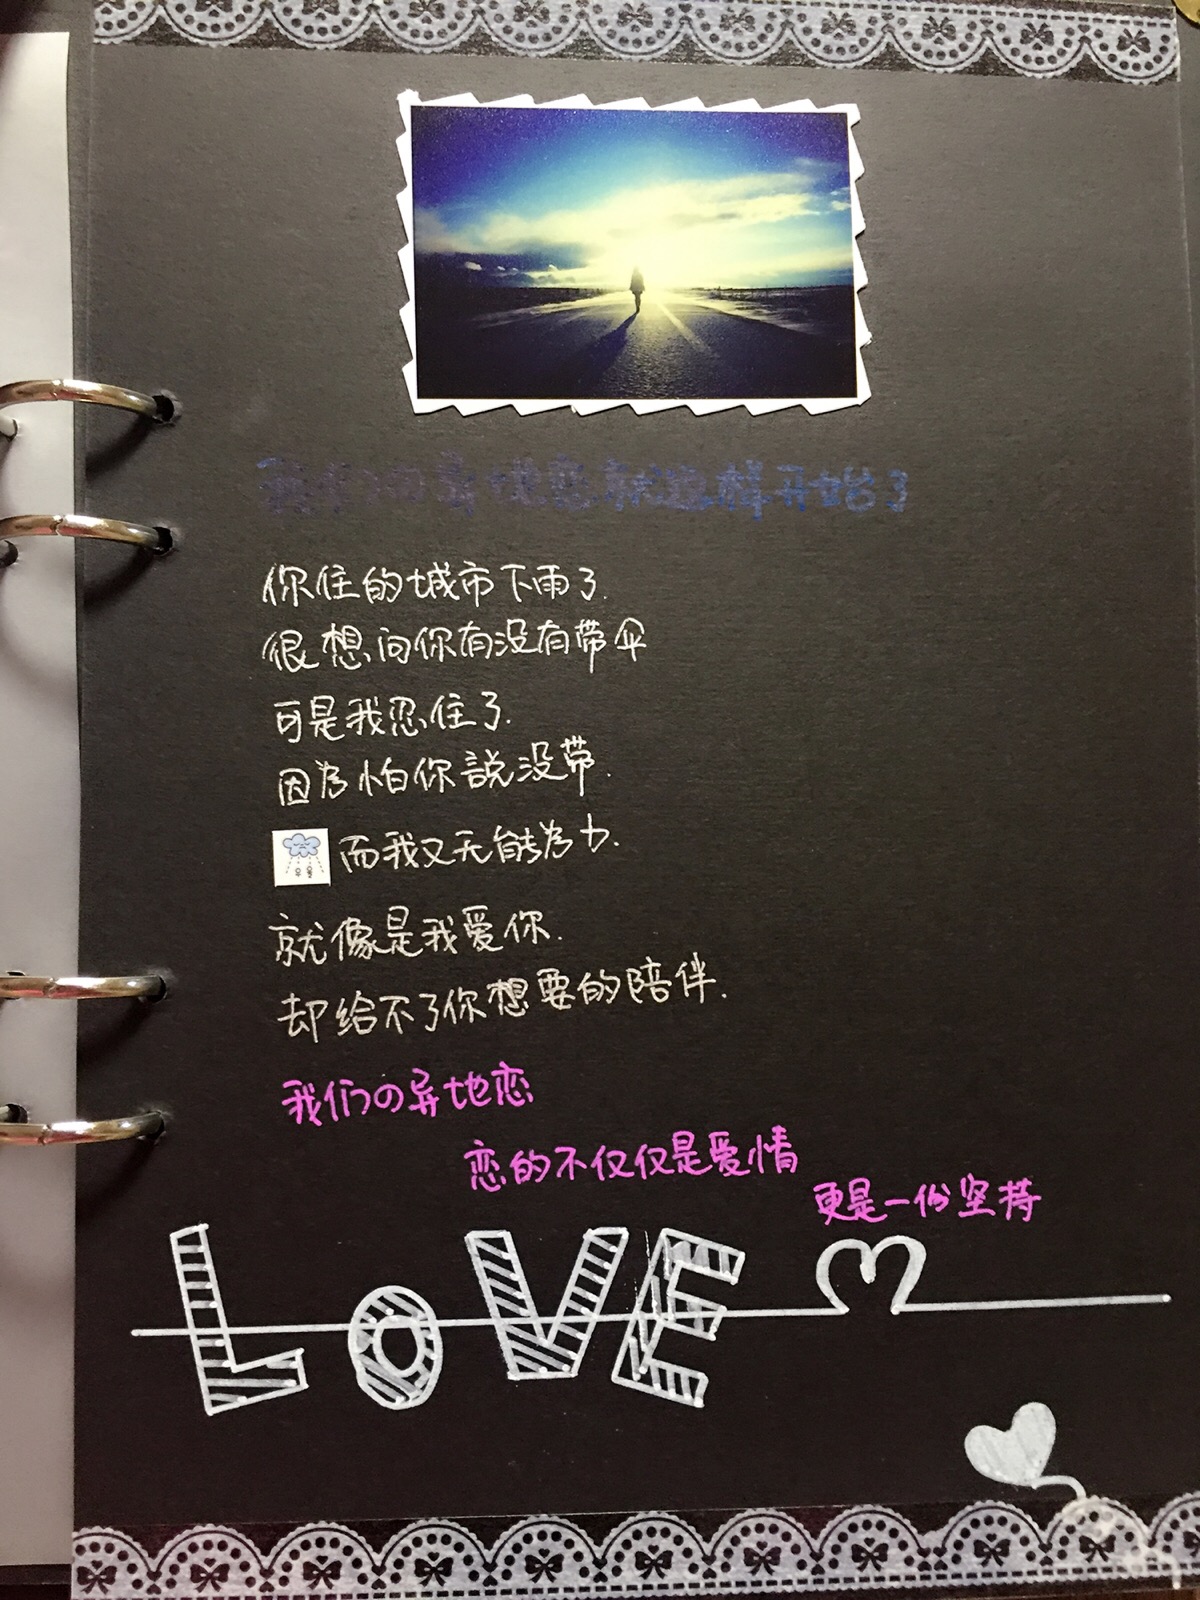 我们の异地恋就这样开始了
你住的城市下雨了.
很想问你有没有带伞
可是我忍住了.
因为怕你說没带.
而我又无能为力.
就像是我爱你.
却给不了你想要的陪伴.
我们の异地恋
恋的不仅仅是爱情
更是一份坚持
LOVE